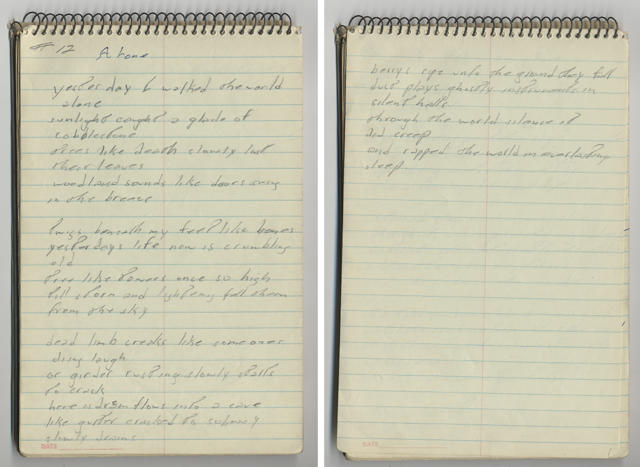 # 12
Alone
yesterday I walked the world
alone
sunlight caught a glade of
coblestone
trees like death slowly lost
their leaves
woodland sounds like doors swing
in the breeze
twigs beneath my feet like bones
yesterdays life now is crumbling
old
tree like towers once so high
till storm and lightning fell them
from the sky
dead limb creaks like someones
diing laugh
or girder rusting slowly starts
to crack
here is drem flows into a cave
like gutter cracked to subway
slowly drains
DATE
berrys ripe unto the ground they fall
dust plays ghostly instruments in
silent halls
through the world silence it
did creep
and rapped the world in everlasting
sleep
DATE